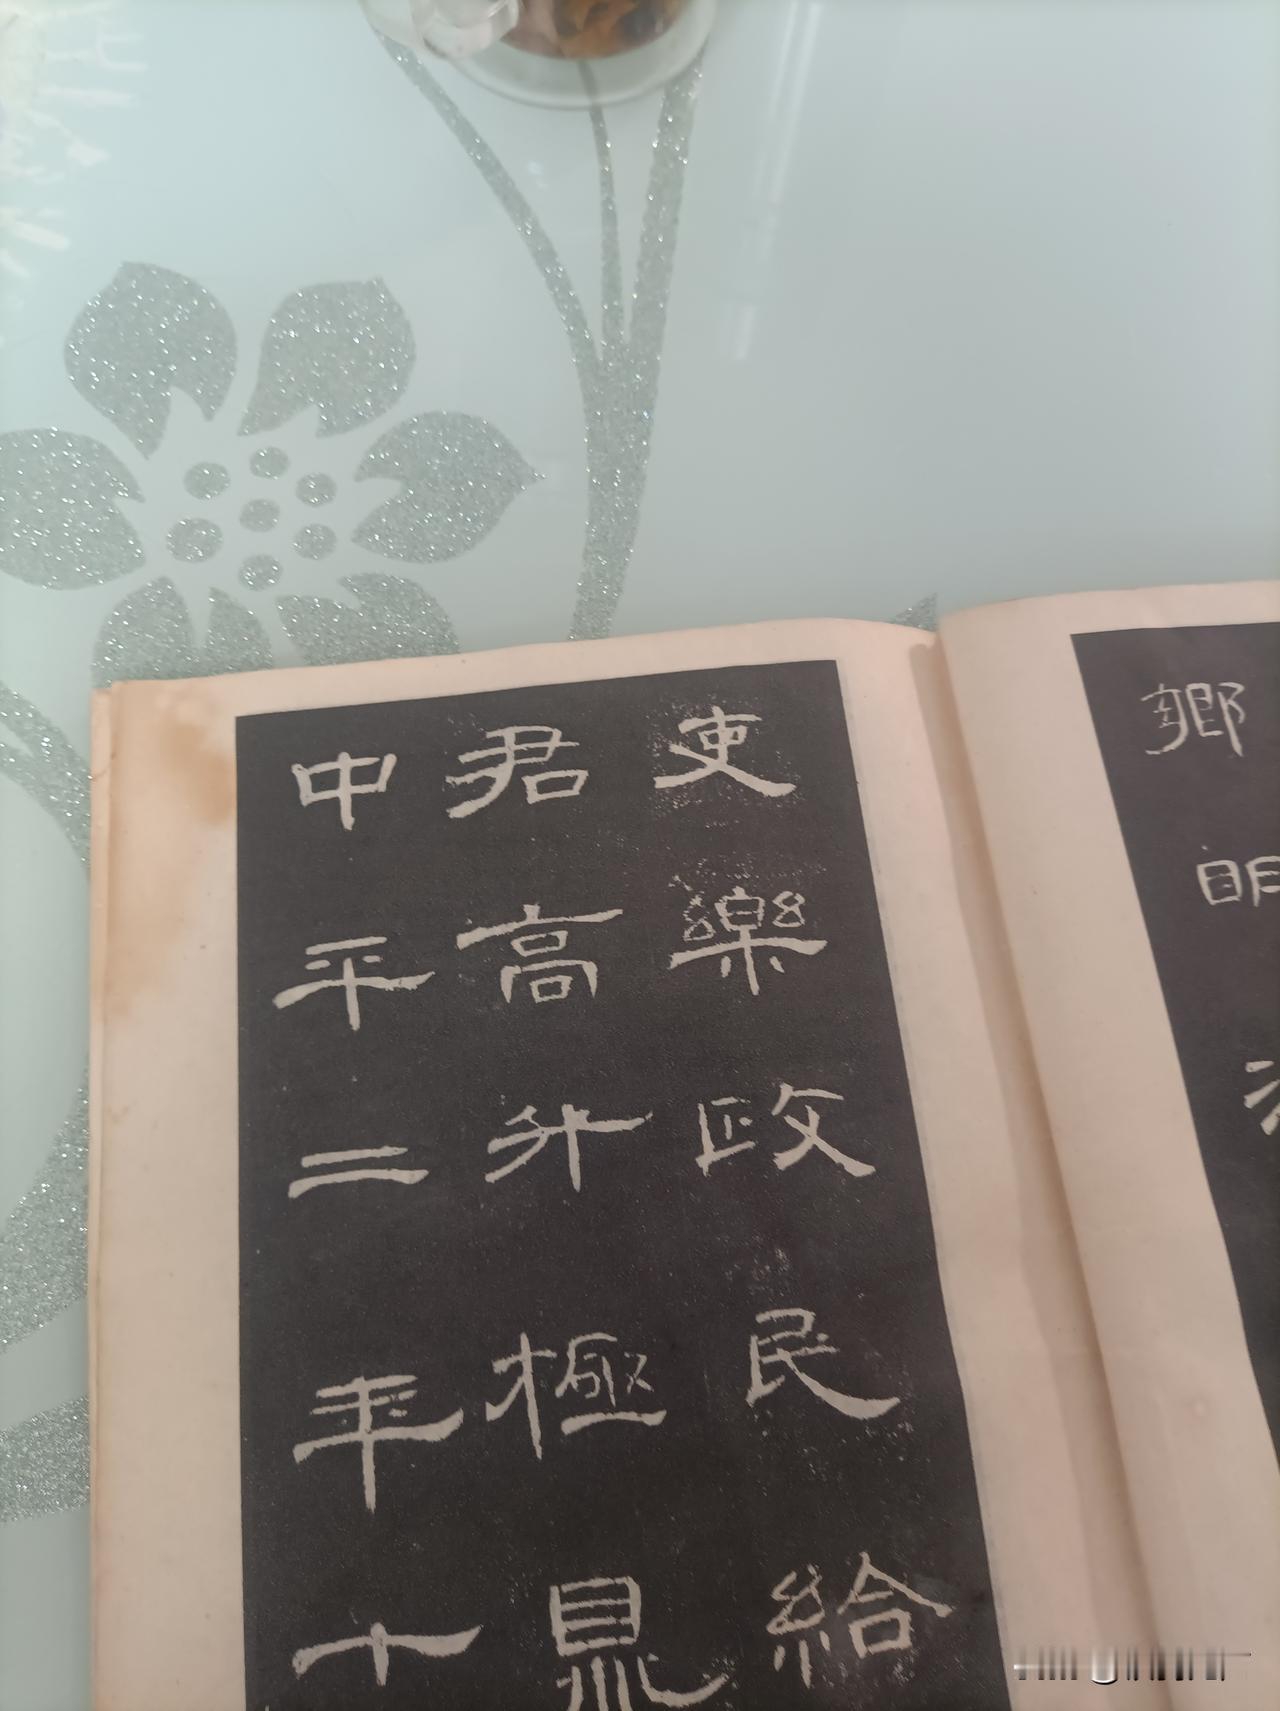 鄉明
吏樂政民給
君高升極鼎
中平二年十